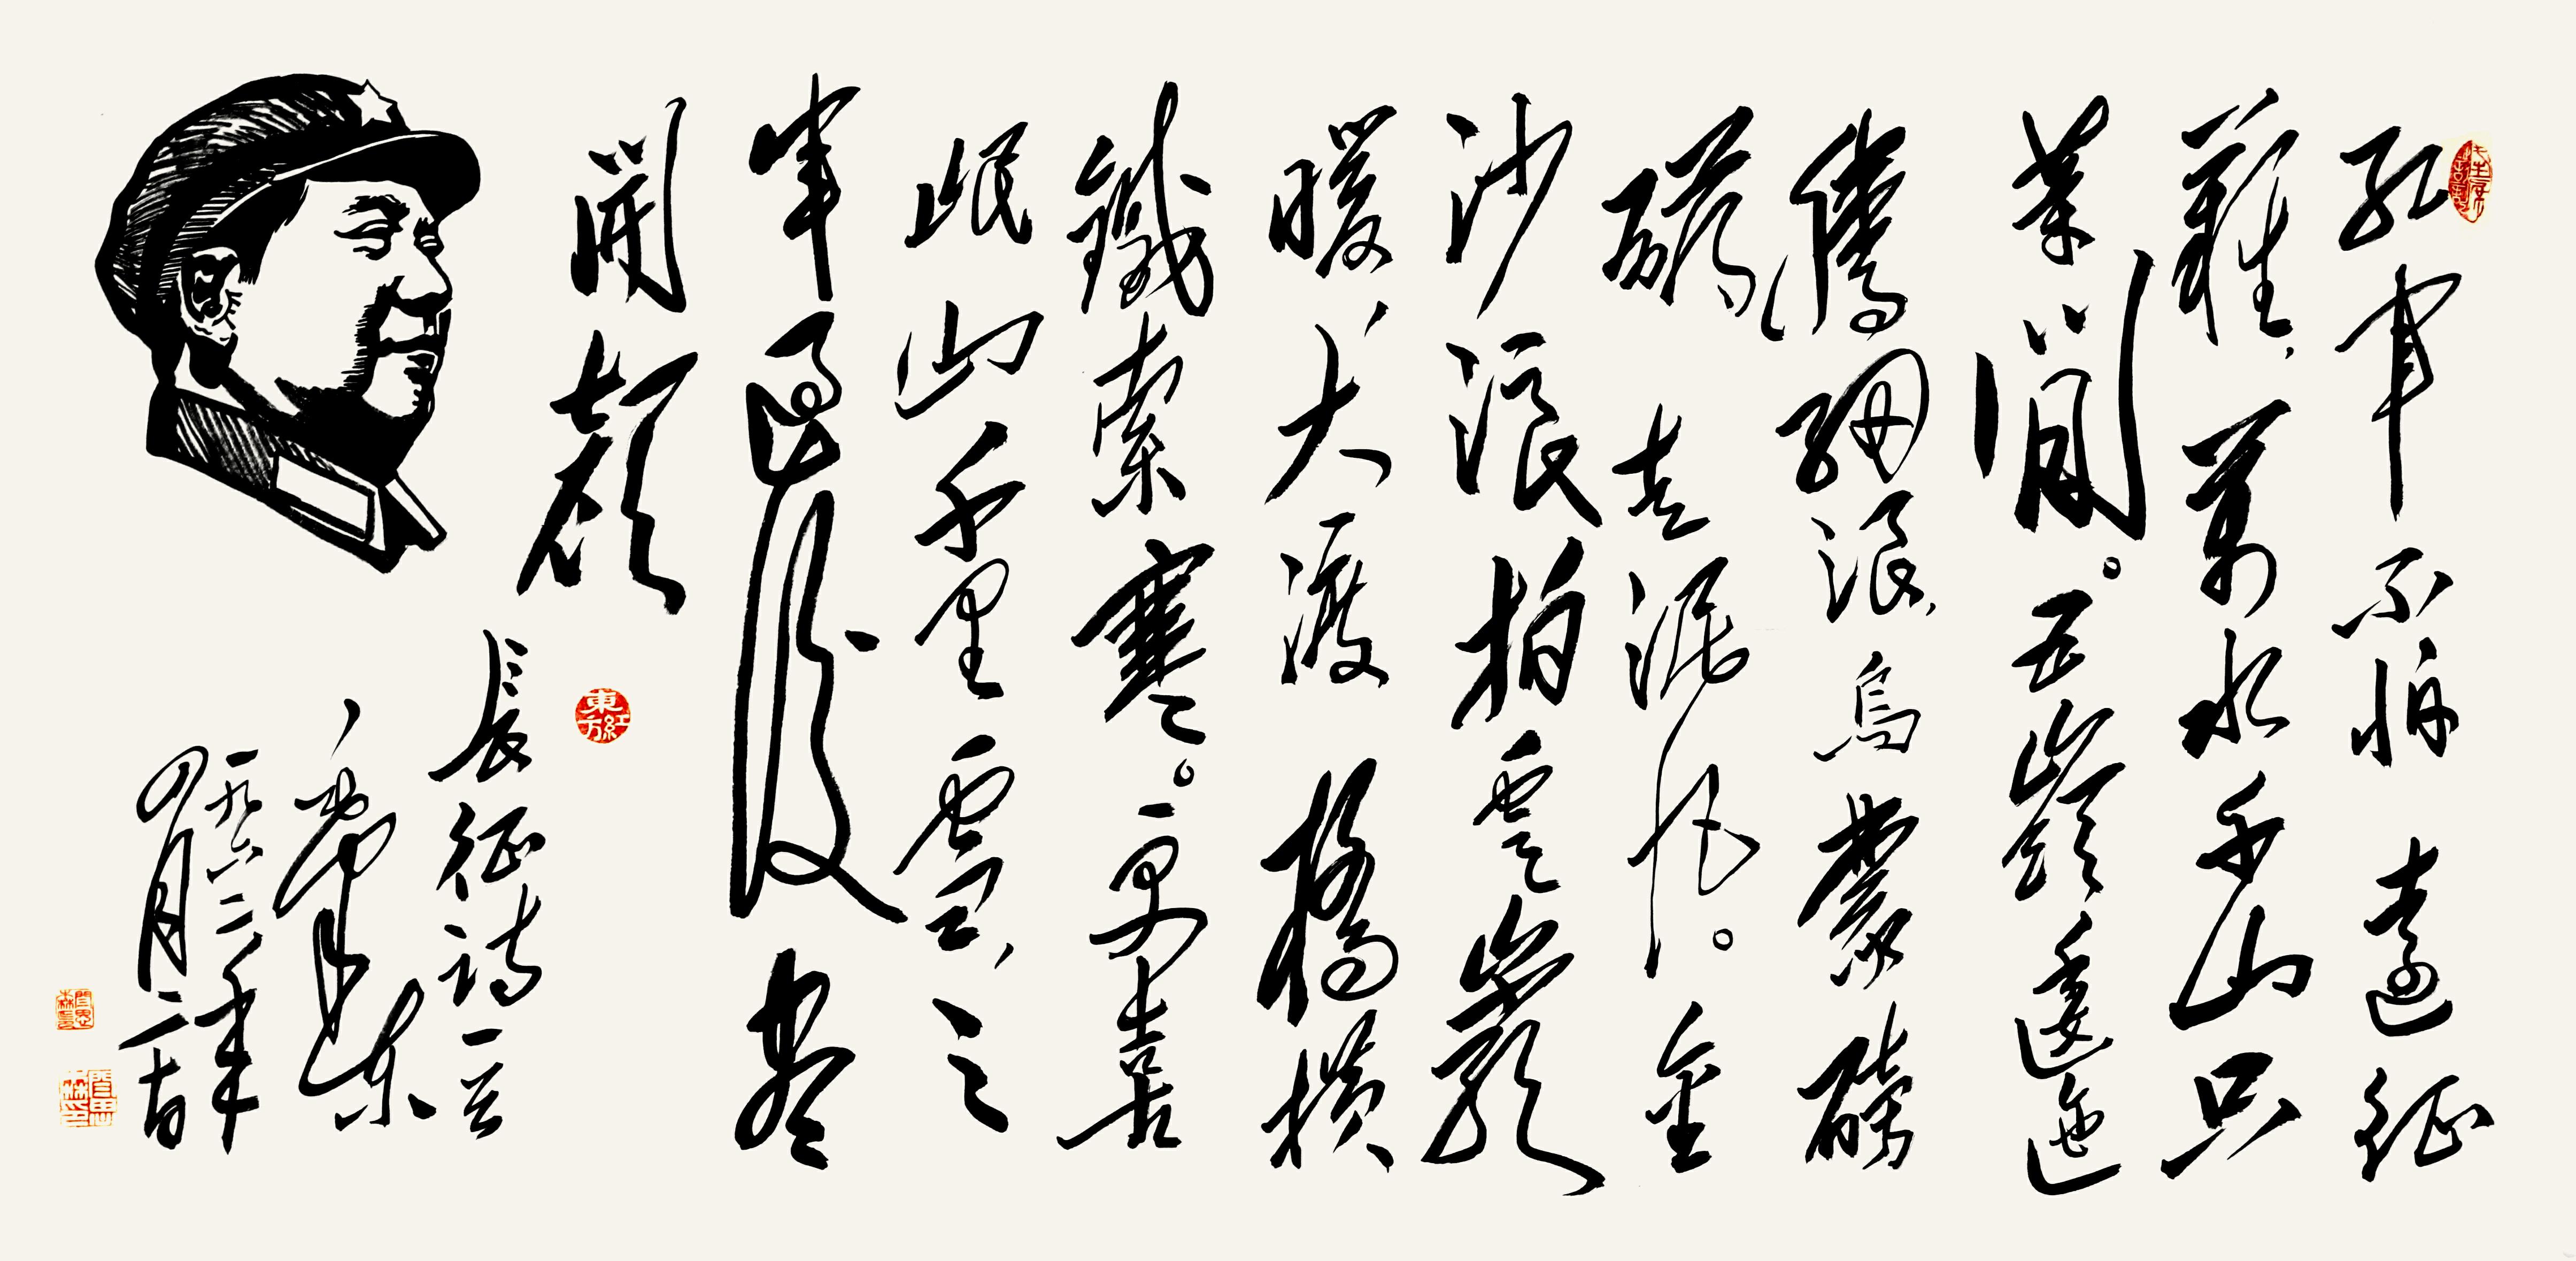 紅軍不怕遠征
難,萬水千山只
等閒。五嶺逶迤
騰細浪,烏蒙磅
礴走泥丸。金
沙浪拍雲巖
暖,大渡橋橫
鐵索寒。更喜
岷山千里雪,三
軍過後盡
開顏
東方紅
長征詩一首
毛澤东
一九六二年
四月二十日